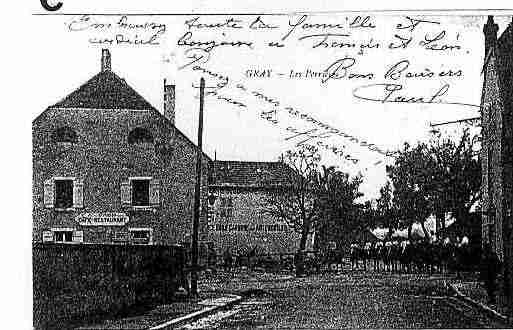 C
Embrassez toute la famille et
cordial bonjour à François et Léon.
GRAY — Les
Bons Baisers
Pensez à mes recommandations
pour les affaires
Paul
CAFÉ-RESTAURANT